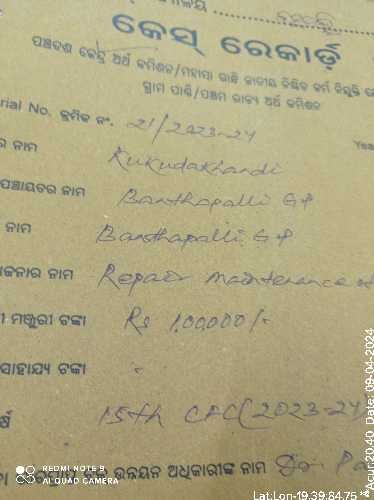 କେସ୍ ରେକାର୍ଡ଼
ପଞ୍ଚଦଶ କେନ୍ଦ୍ର ଅର୍ଥ କମିଶନ/ମହାତ୍ମା ଗାନ୍ଧି ଜାତୀୟ ନିଶ୍ଚିତ କର୍ମ ନିଯୁକ୍ତି
ଗ୍ରାମ ପାଣ୍ଠି/ପଞ୍ଚମ ରାଜ୍ୟ ଅର୍ଥ କମିଶନ
rial No. କ୍ରମିକ ନଂ. 21/2023-24
Yea
ର ନାମ Kukudakhandi
ପଞ୍ଚାୟତର ନାମ Banthapalli GP
ନାମ Banthapalli GP
ଜନାର ନାମ Repair Maintenance of
ମଞ୍ଜୁରୀ ଟଙ୍କା Rs 1,00,000/-
ସାହାଯ୍ୟ ଟଙ୍କା -
ର୍ଷ 15th CFC (2023-24
ଉନ୍ନୟନ ଅଧିକାରୀଙ୍କ ନାମ
REDMI NOTE 9
AI QUAD CAMERA
Lat:Lon-19.39:84.75 *
Acur:20.40 Date: 09-04-2024